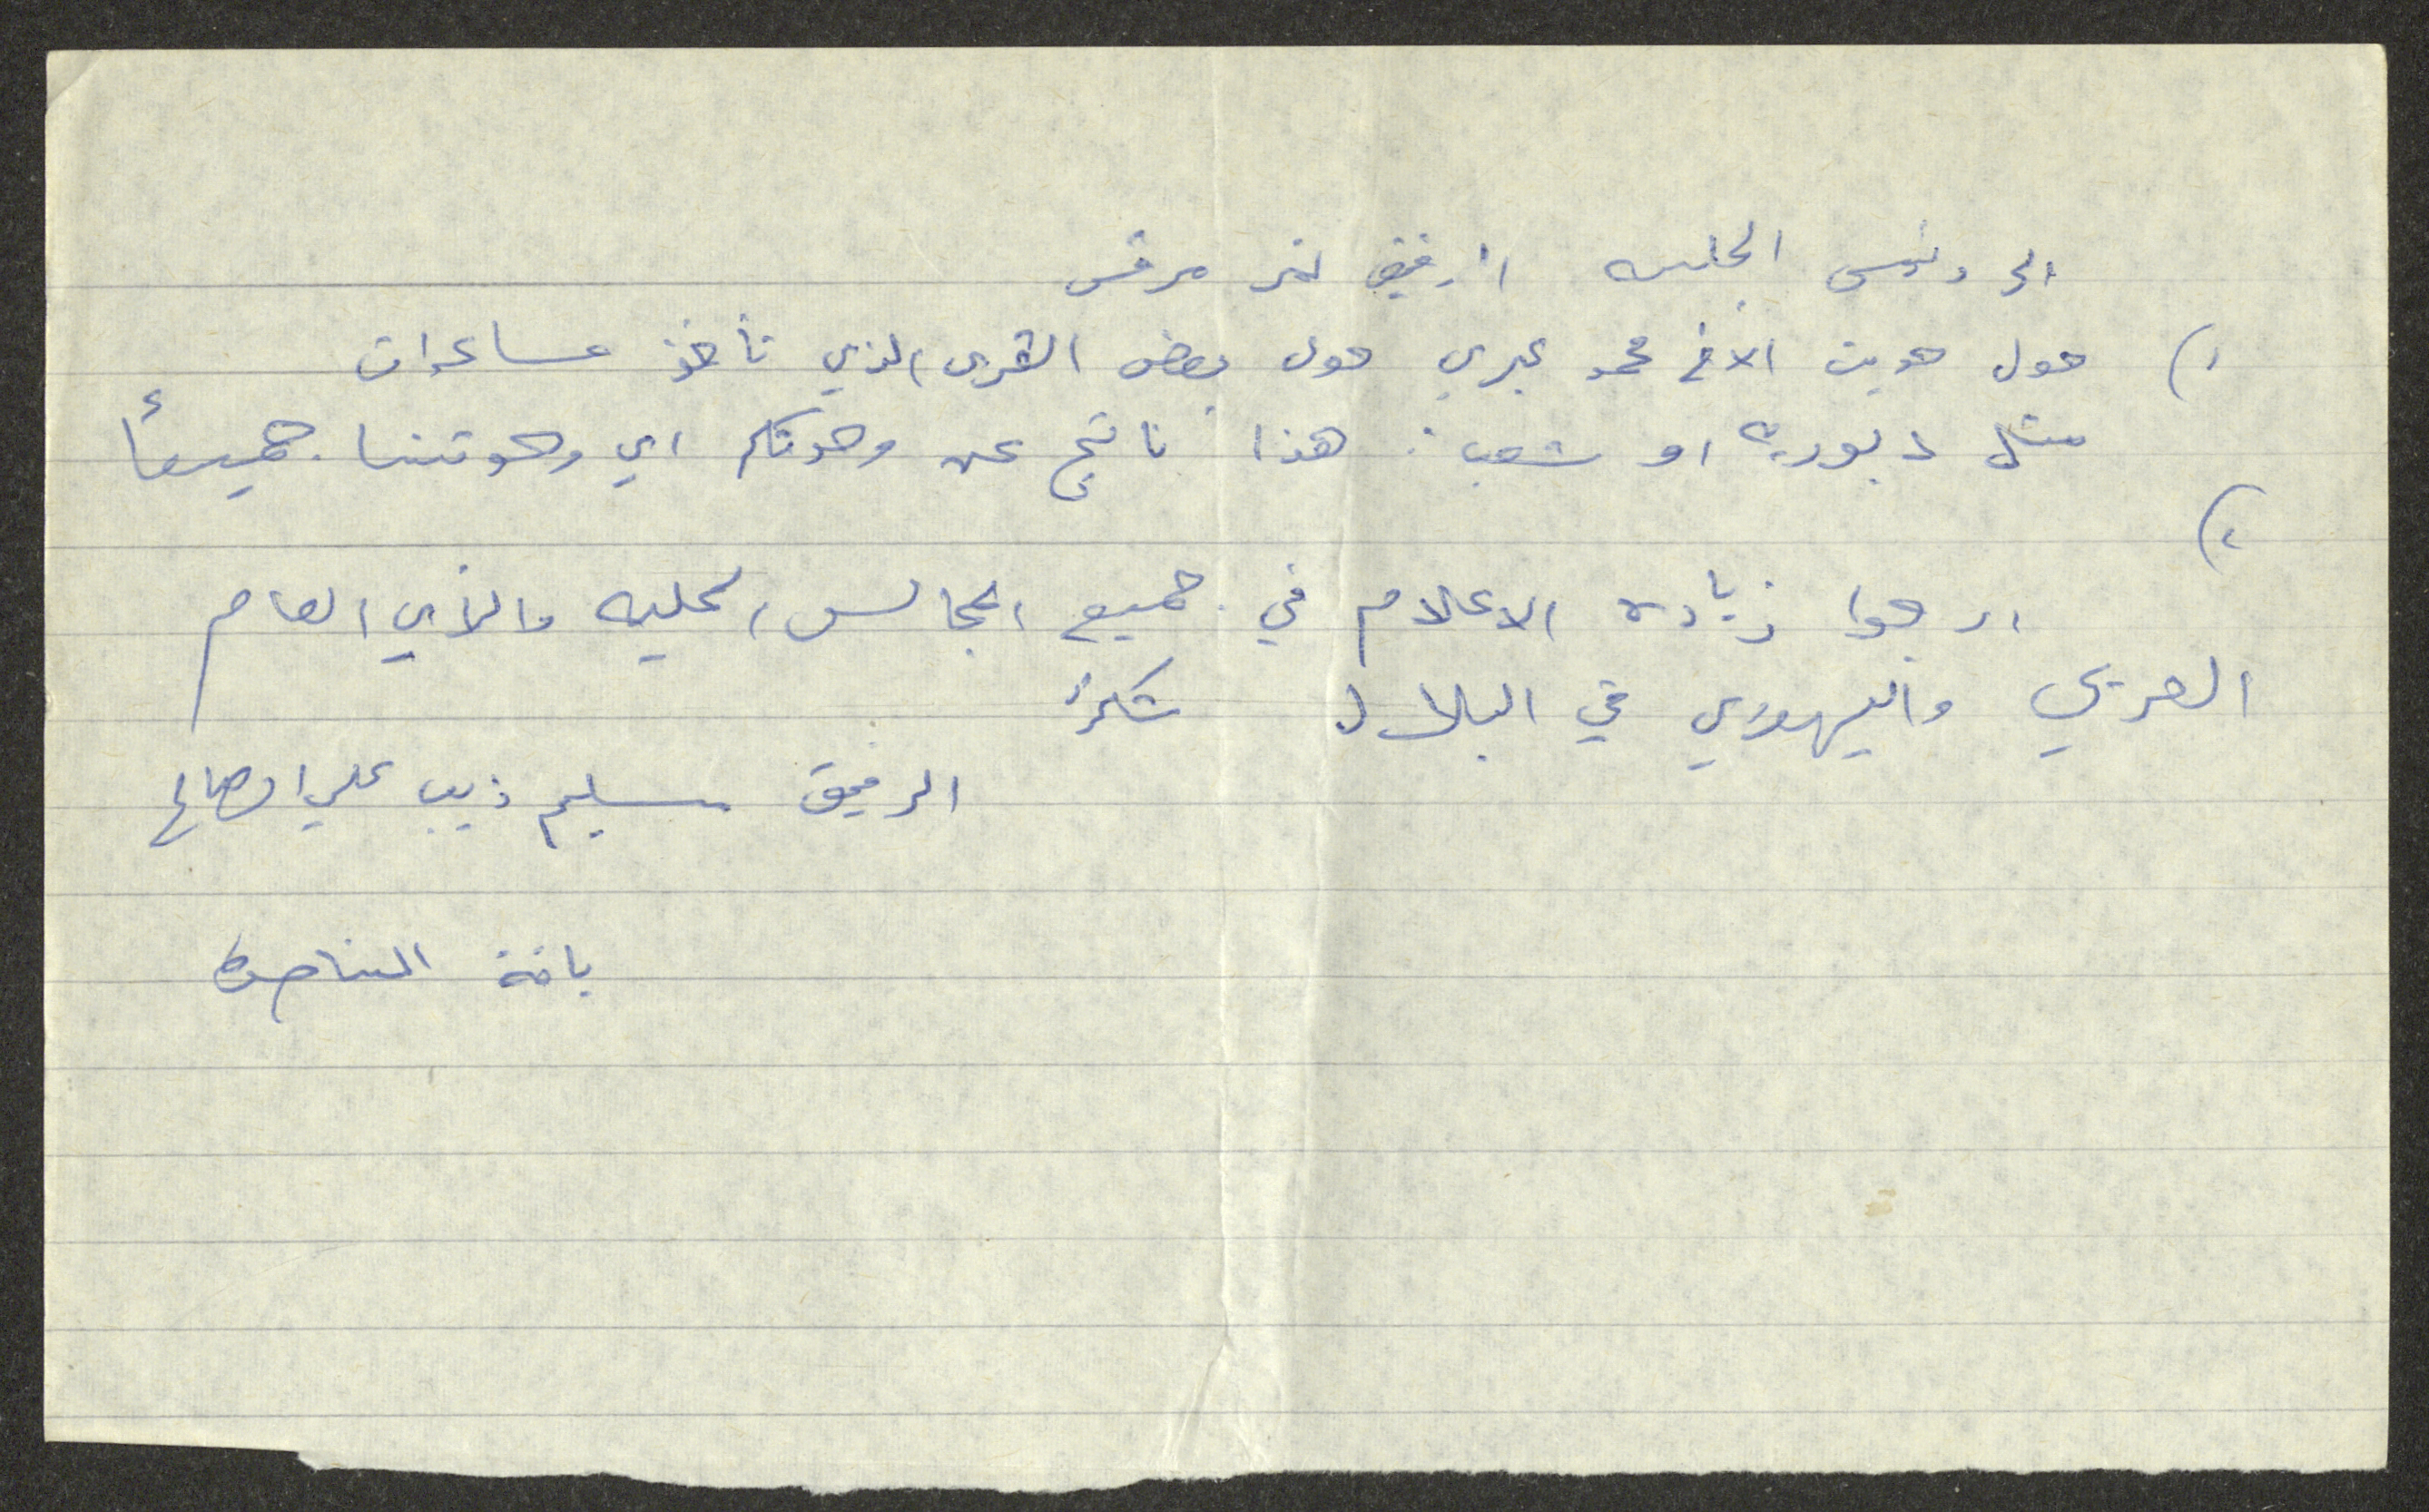 الى رئيس الجلسه الرفيق نمر مرقس
١) حول حديث الاخ محمد عبري حول بعض القرى الذي تأخذ مساعدات
مثل دبوريه او شعب: هذا ناتج عن وحدتكم اي وحدتنا جميعاً
٢)
ارجوا زيادة الاعلام في جميع المجالس المحليه والرأي العام
العربي واليهودي في البلاد شكراً
الرفيق سليم ذيب علي الصالح
يافة الناصرة